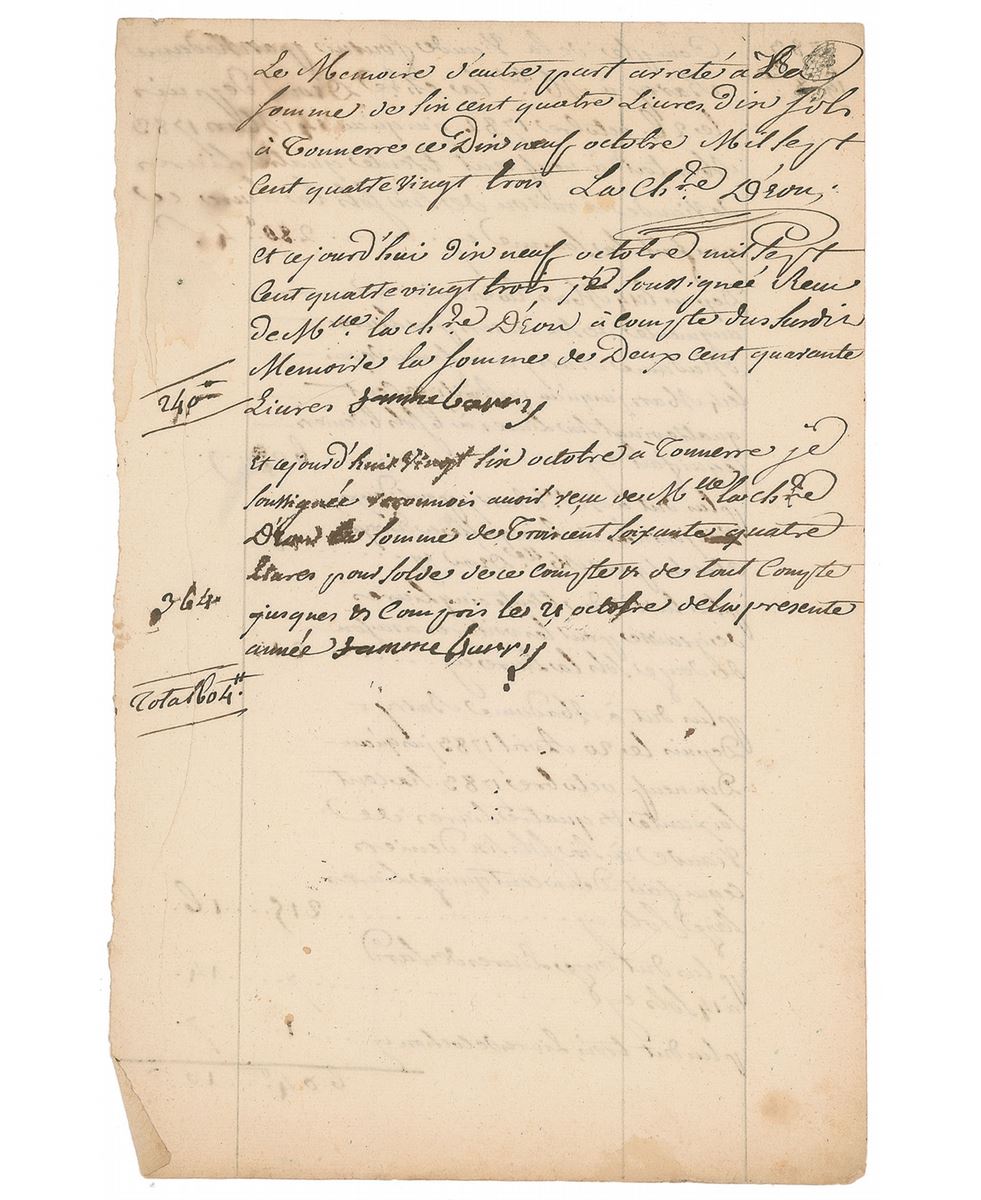 Le Memoire d'autre part arreté a La
somme de Six cent quatre Livres Dix sols
à Tonnerre ce Dix neuf octobre Mil sept
Cent quatre vingt trois La Chre D'Eon
et cejourd'hui Dix neuf octobre mil sept
Cent quatre vingt trois je soussignée Reçu
de Mlle la chre D'Eon à compte dussusdit
Memoire la somme de Deux cent quarante
240tt Livres
et cejourd'hui vingt sin octobre à Tonnerre je
soussignée reconnois avoir reçu de Mlle la chre
D'Eon la somme de Troiscent soixante quatre
Livres pour solde de ce Compte & de tout Compte
364 jusques & Compris les 21 octobre dela presente
année
Total 604tt